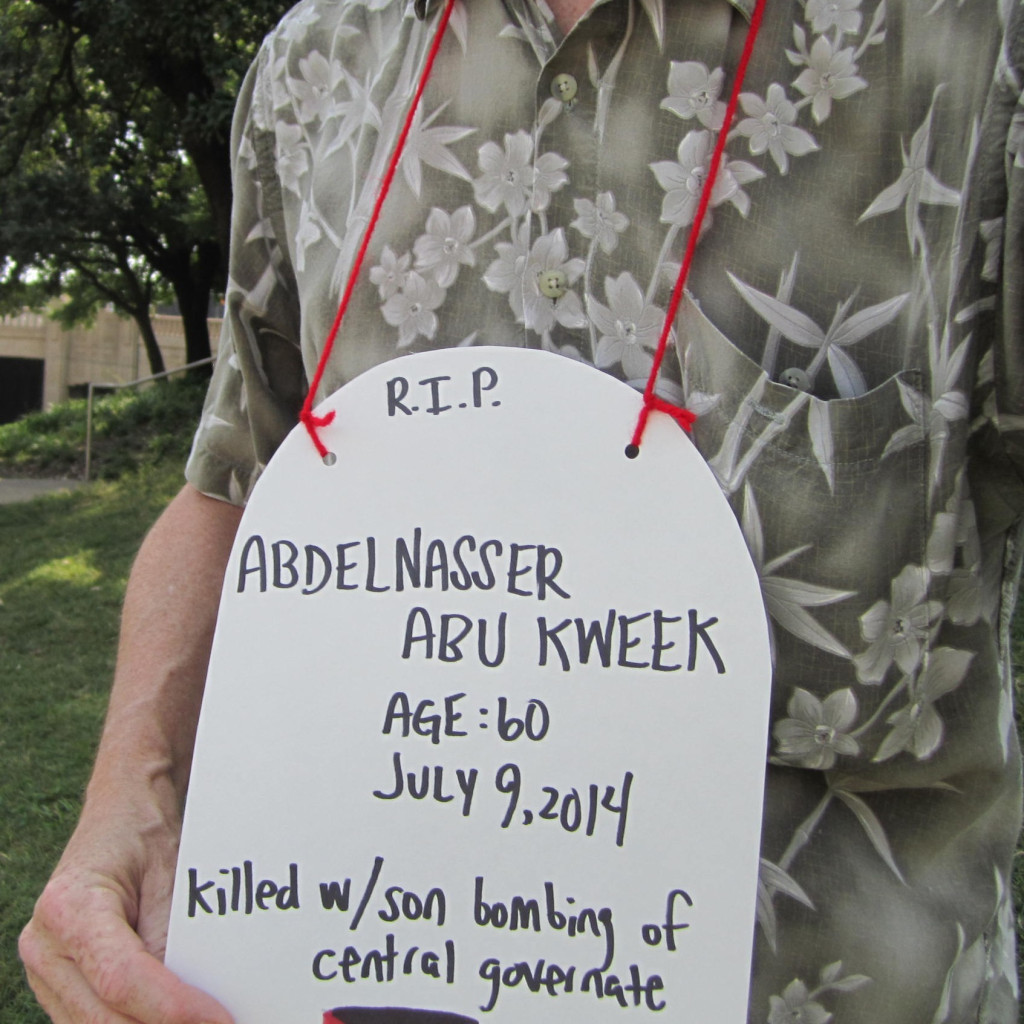 R.I.P.
ABDELNASSER
ABU KWEEK
AGE: 60
JULY 9, 2014
killed w/son bombing of
central governate